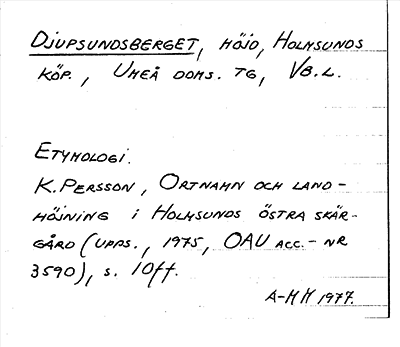 DJUPSUNDSBERGET, HÖJD, HOLMSUNDS
KÖP., UMEÅ DOMS. TG, VB.L.
ETYMOLOGI.
K. PERSSON, ORTNAMN OCH LAND-
HÖJNING I HOLMSUNDS ÖSTRA SKÄR-
GÅRD (UPPS., 1975, OAU ACC.-NR
3590), S. 10ff.
A-MM 1977.